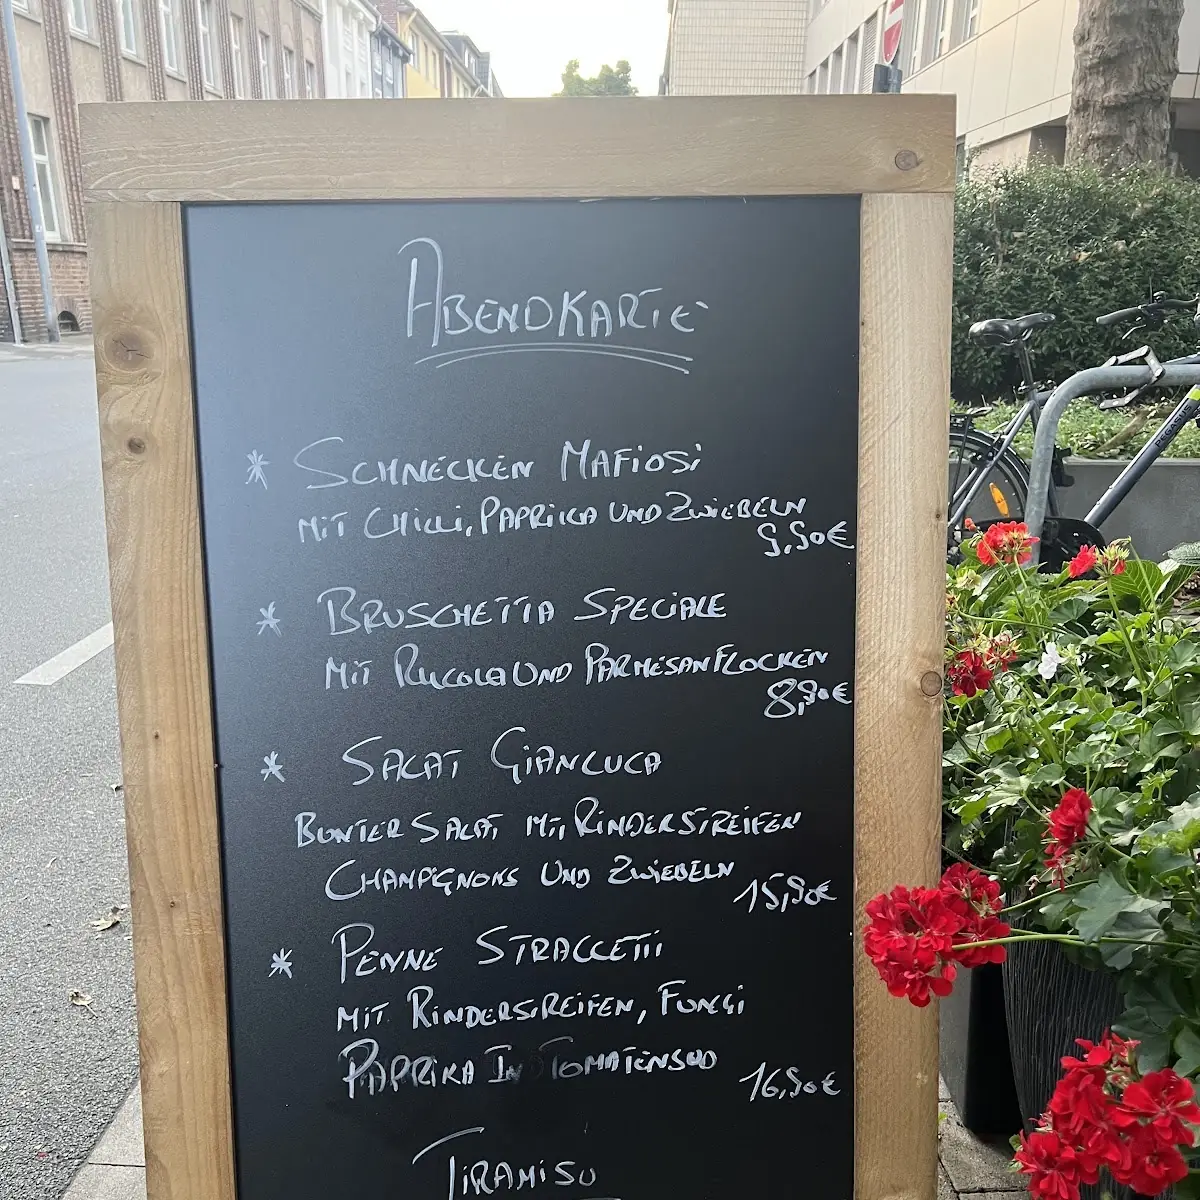 ABENDKARTE
* SCHNECKEN MAFIOSI
MIT CHILLI, PAPRIKA UND ZWIEBELN
9,90€
* BRUSCHETTA SPECIALE
MIT RUCOLA UND PARMESANFLOCKEN
8,90€
* SALAT GIANLUCA
BUNTER SALAT MIT RINDERSTREIFEN
CHAMPIGNONS UND ZWIEBELN
15,90€
* PENNE STRACCETTI
MIT RINDERSTREIFEN, FUNGI
PAPRIKA IN TOMATENSUD
16,90€
TIRAMISU
PEGASUS